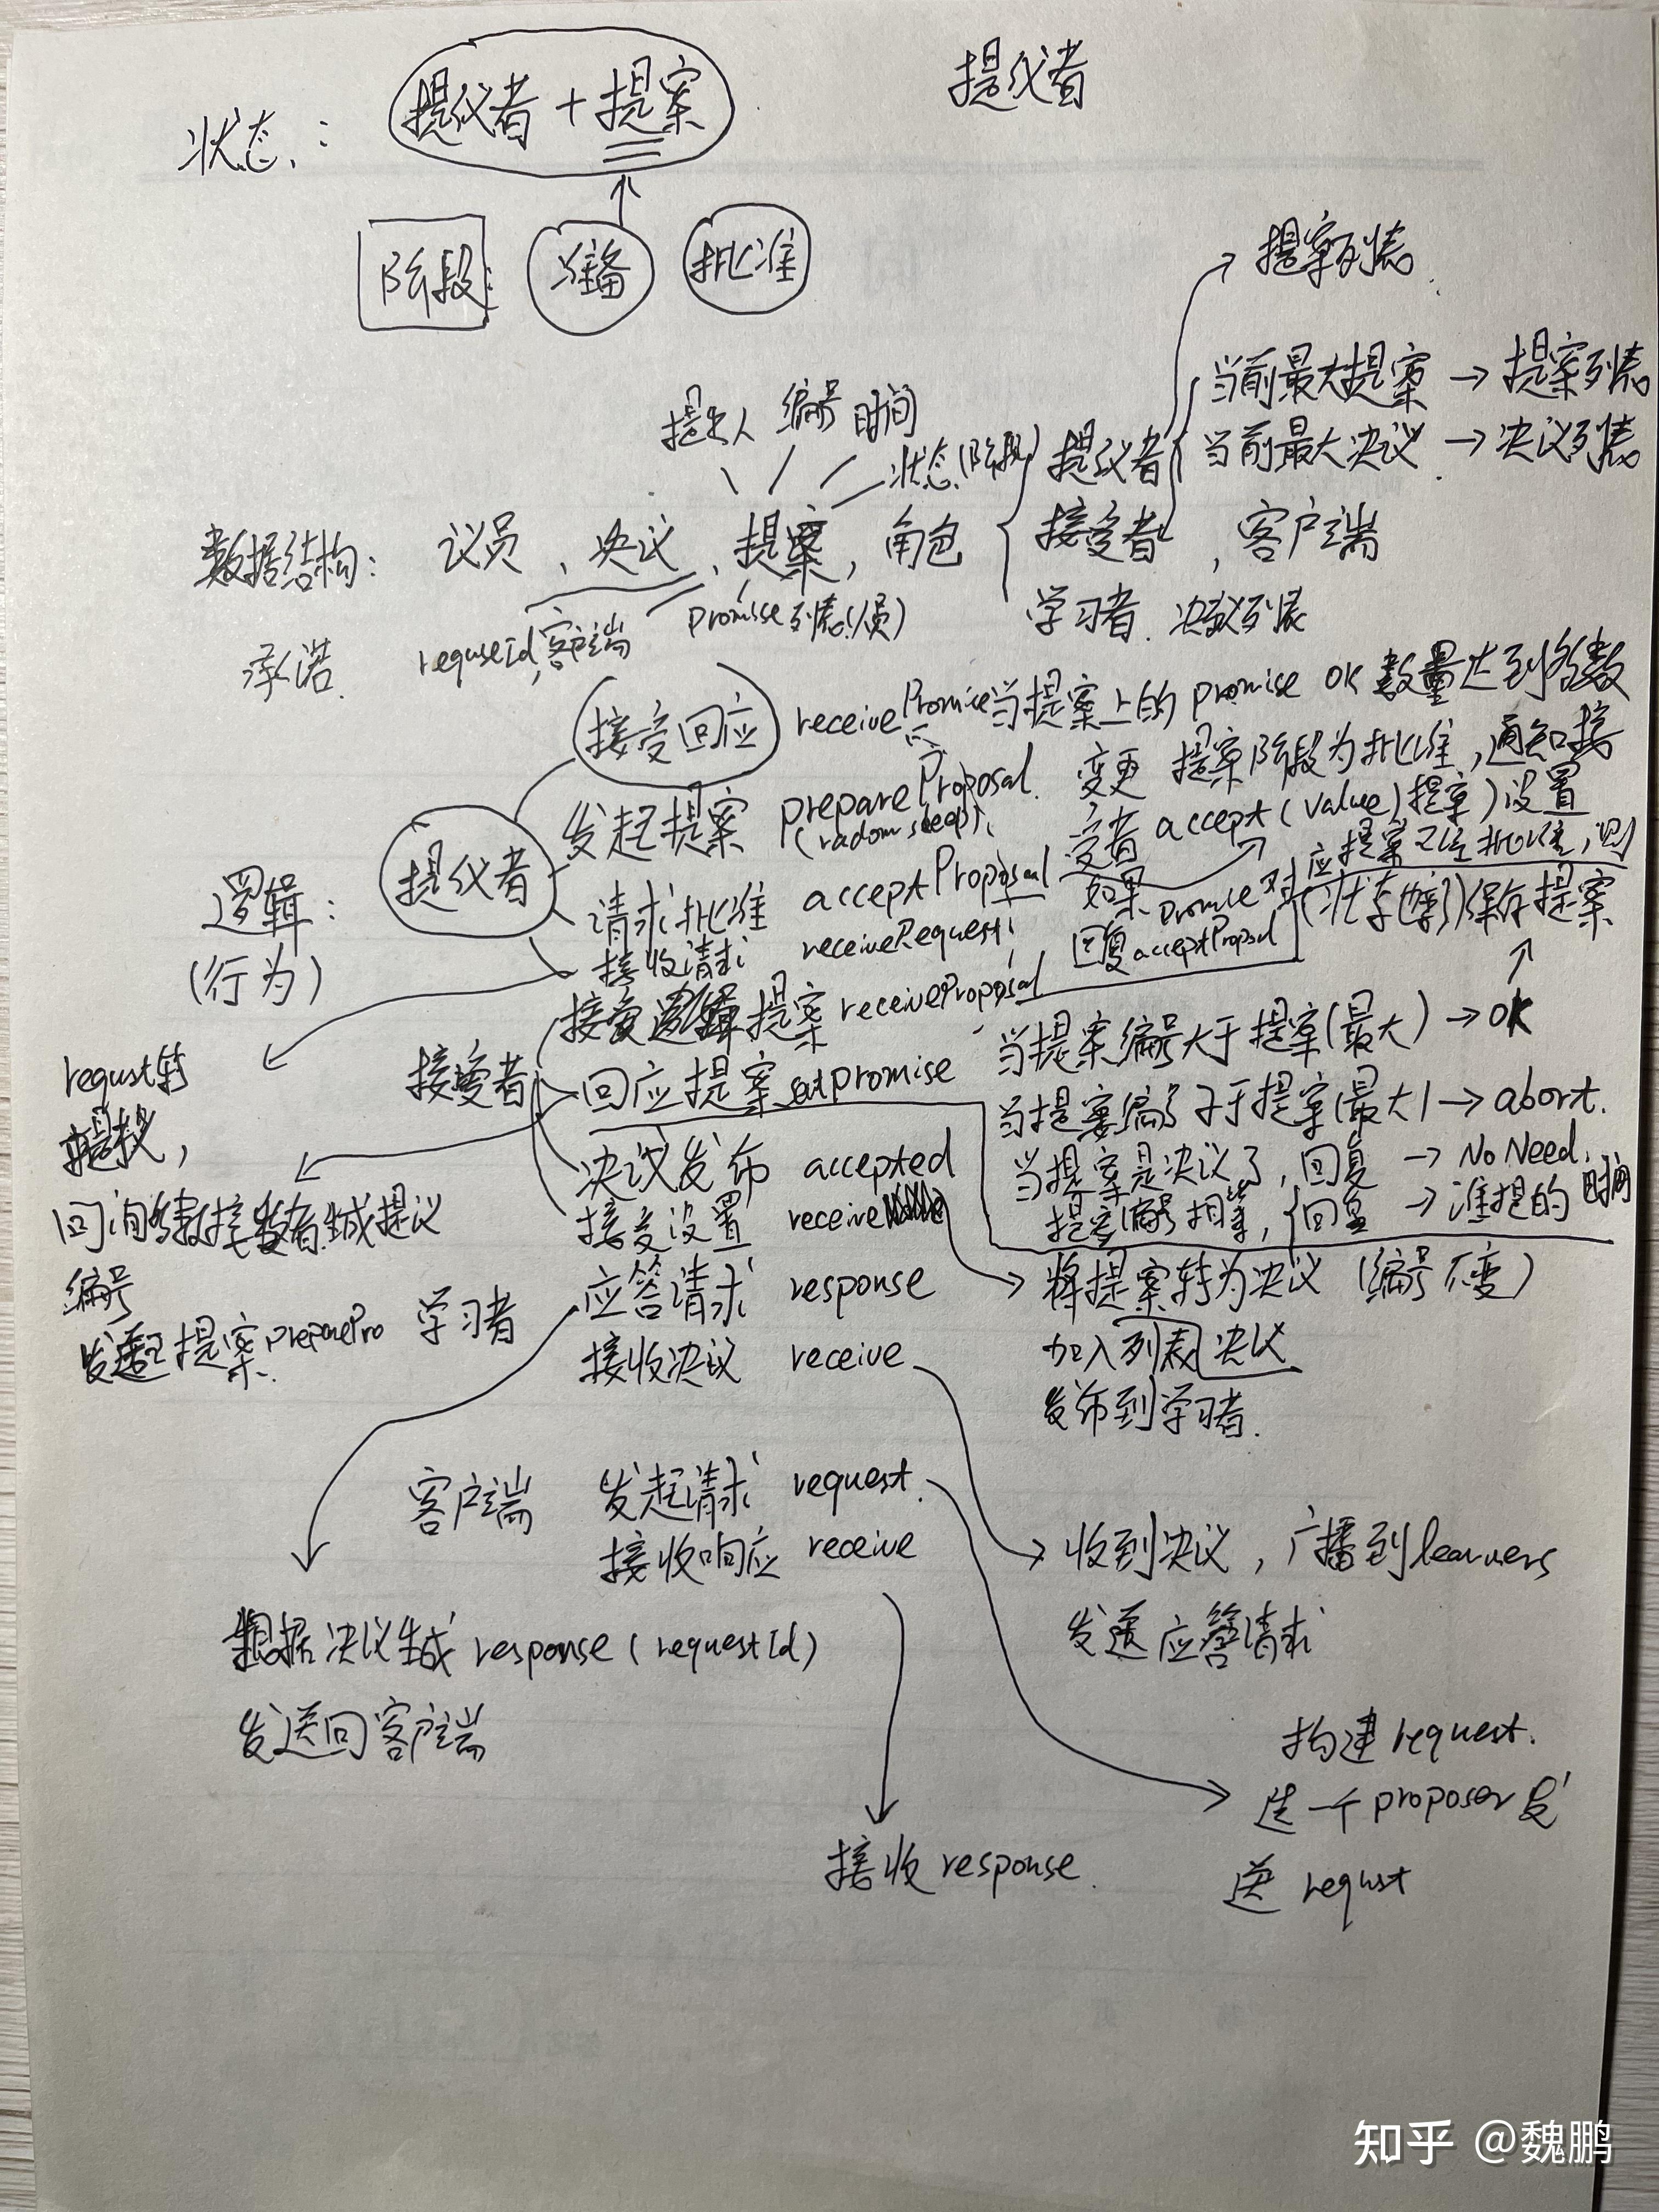 提议者
状态: 提议者 + 提案
阶段: 准备 批准
提案列表
当前最大提案 → 提案列表
当前最大决议 → 决议列表
提出人 编号 时间
状态(阶段)
数据结构: 议员、决议、提案, 角色 提议者
接受者, 客户端
学习者 决议列表
承诺 requseId, 客户端
promise列表(人员)
接受回应 receivePromise 当提案上的 promise OK 数量达到多数
变更 提案阶段为批准, 通知接
受者 accept(value)提案)设置
逻辑: 提议者 发起提案 prepareProposal
(行为) (radom sleep)
请求批准 acceptProposal
接收请求 receiveRequest
如果 promise 对应提案已经批准, 则
回复 acceptPropsal
保存提案
接受者 接受提案 receiveProposal
当提案编号大于提案(最大) → OK
回应提案 promise
当提案编号 于提案(最大) → abort.
决议发布 accepted
当提案是决议了, 回复 → No Need.
接受设置 receive
提案编号相等, 回复 → 谁提的 时间
requst转
提议,
编号
发起提案 preparePro
学习者 应答请求 response
接收决议 receive
将提案转为决议 (编号不变)
加入列表 决议
发布到学习者.
客户端 发起请求 request.
接收响应 receive
收到决议, 广播到learners
发送应答请求
根据决议生成 response (requestId)
发送回客户端
构建 request.
选一个 proposer 发
送 requst
接收 response.
知乎 @魏鹏